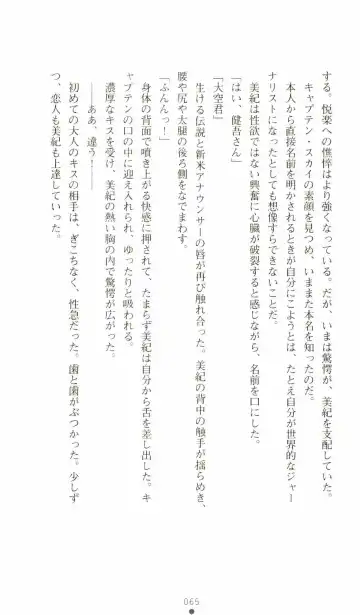 する。悦楽への憧憬はより強くなっている。だが、いまは驚愕が、美紀を支配していた。
キャプテン・スカイの素顔を見つめ、いままた本名を知ったのだ。
本人から直接名前を明かされるときが自分にこようとは、たとえ自分が世界的なジャー
ナリストになったとしても想像すらできないことだ。
美紀は性欲ではない興奮に心臓が破裂すると感じながら、名前を口にした。
「はい、健吾さん」
「大空君」
生ける伝説と新米アナウンサーの唇が再び触れ合った。美紀の背中の触手が揺らめき、
腰や尻や太腿の後ろ側をなでまわす。
「ふんんっ！」
身体の背面で噴き上がる快感に押されて、たまらず美紀は自分から舌を差し出した。キ
ャプテンの口の中に迎え入れられ、ゆったりと吸われる。
濃厚なキスを受け、美紀の熱い胸の内で驚愕が広がった。
――ああ、違う！――
初めての大人のキスの相手は、ぎこちなく、性急だった。歯と歯がぶつかった。少しず
つ、恋人も美紀も上達していった。
065